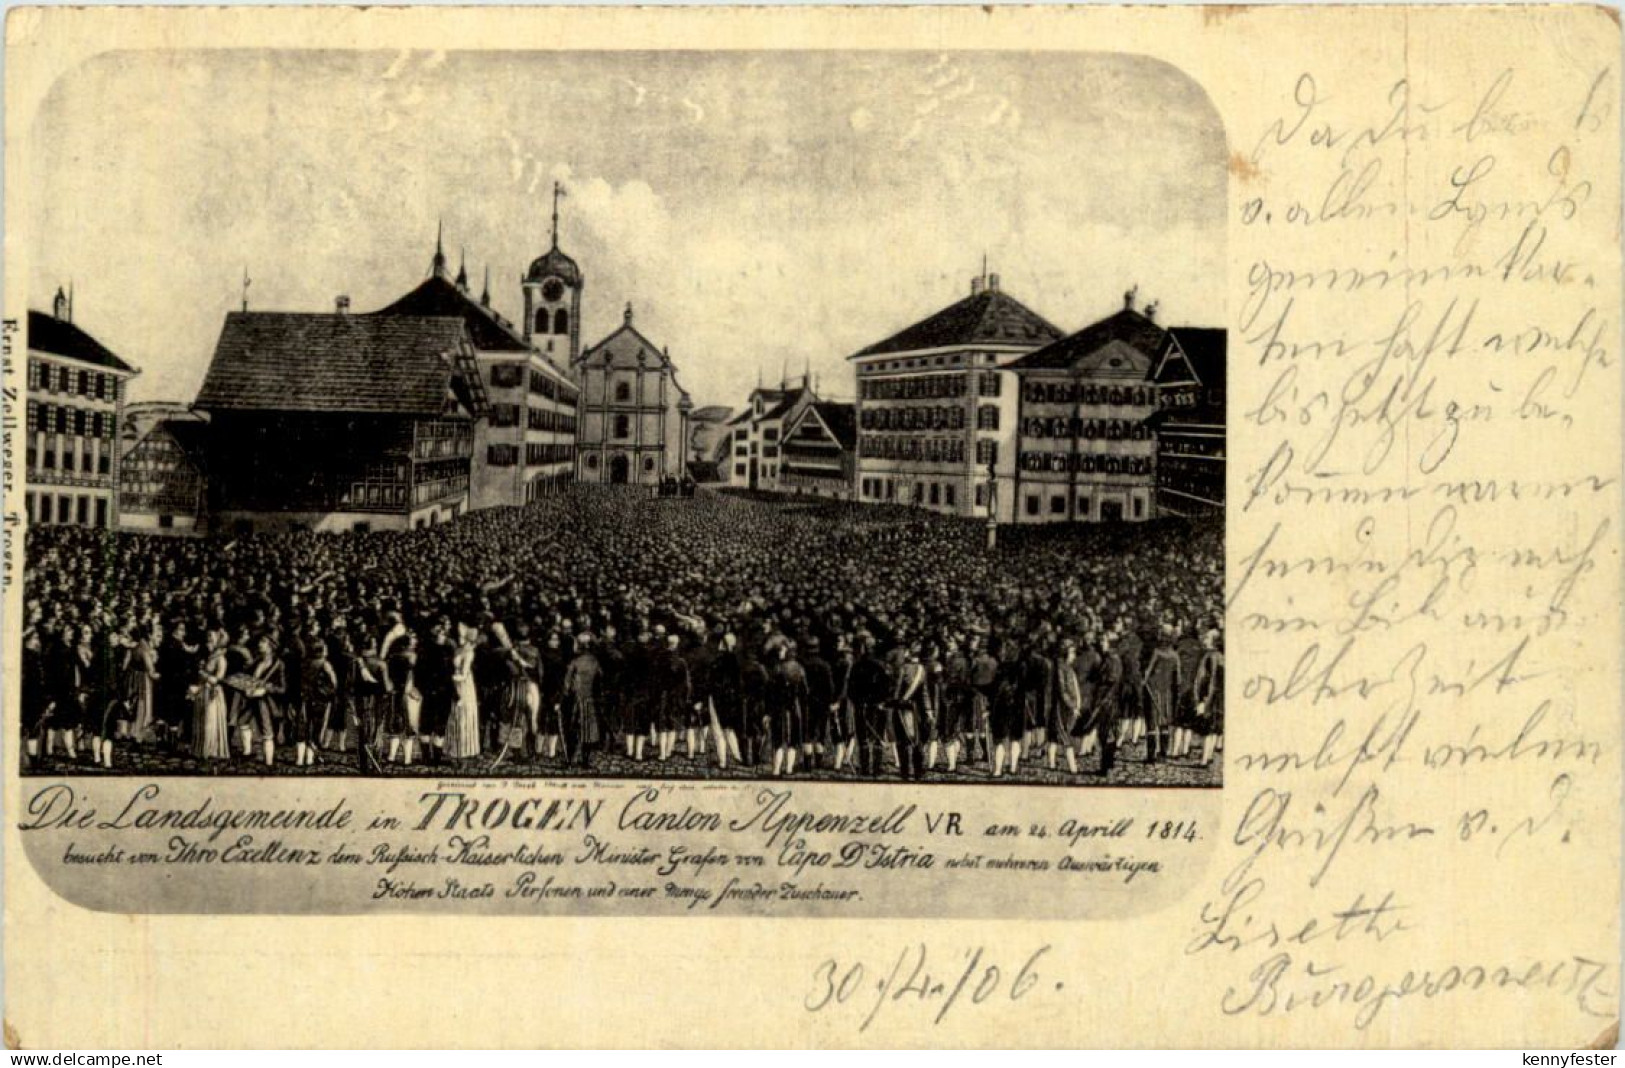 Ernst Zellweger, Trogen.
Die Landsgemeinde, in TROGEN Canton Appenzell VR am 24. Aprill 1814.
besucht von Ihro Exellenz dem Rußisch-Kaiserlichen Minister Grafen von Capo D'Istria nebst mehreren Auswärtigen
Hohen Staats Personen und einer Menge fremder Zuschauer.
Da Du
v. allen Lands
gemeinnen Kar-
ten hast welche
bis Jetzt zu be-
kommen waren
sende Dir noch
ein Bild aus
alter Zeit
nebst vielen
Grüßen v. d.
Lisette
Bürgermeister
30./4./06.
www.delcampe.net
kennyfester